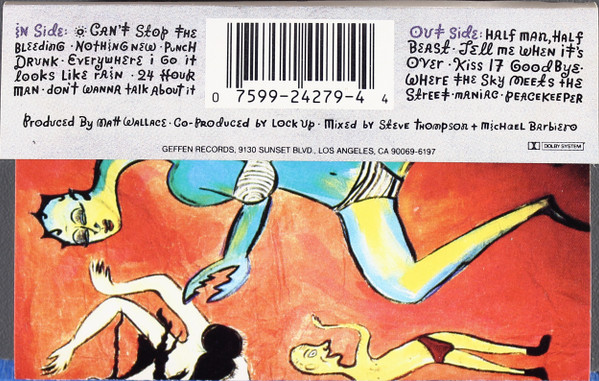 in Side: Can't Stop the
Bleeding · Nothing New · Punch
Drunk · Everywhere i Go it
looks Like rain · 24 Hour
man · don't wanna talk about it
Out Side: Half man, Half
Beast · Tell me when it's
Over · Kiss 17 GoodBye ·
Where the Sky meets the
Street · maniac · peacekeeper
0 7599-24279-4 4
Produced By Matt Wallace · Co-Produced by Lock Up · Mixed by Steve Thompson + Michael Barbiero
GEFFEN RECORDS, 9130 SUNSET BLVD., LOS ANGELES, CA 90069-6197
DOLBY SYSTEM